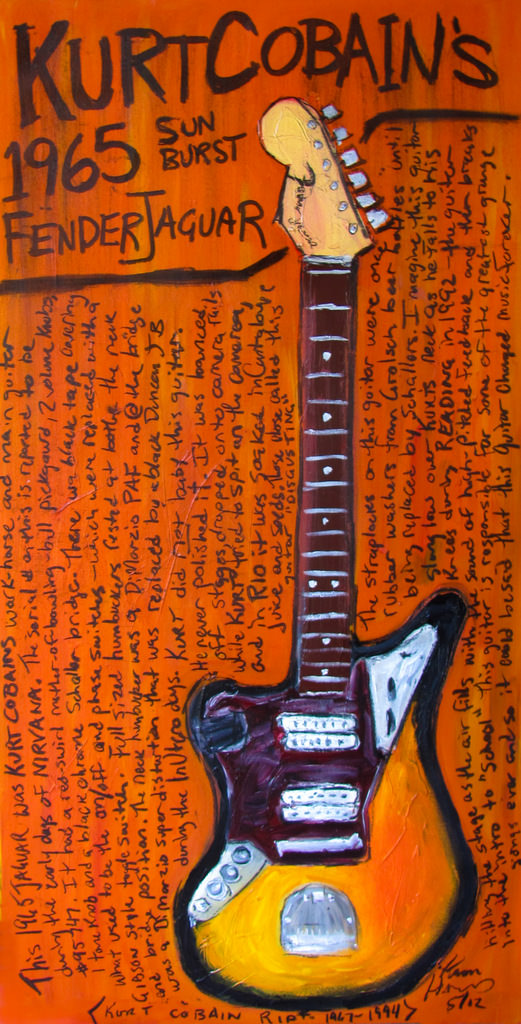 KURT COBAIN'S
1965 SUN BURST
FENDER JAGUAR
This 1965 JAGUAR WAS KURT COBAINS work-horse and main guitar
during the early days of NIRVANA. The serial # on this is reported to be
#95747. It had a red-swirl mother-of-bowling-ball pickguard, 2 volume Knobs,
1 tone Knob and a black chrome Schaller bridge. There was black tape covering
what used to be the on/off and phase switches - which were replaced with a
GIBSON style toggle switch. Full sized humbuckers rested at both the neck
and bridge position. The neck humbucker was a DiMarzio PAF and @ the bridge
was a DiMarzio Super distortion that was replaced by a black Duncan JB
during the In Utero days. KURT did NOT baby this guitar.
He never polished it. It was bounced
off stages, dropped onto camera rails
while Kurt tried to spit on the cameraman,
and in RIO it was soaked in Cantaloupe
juice and seeds. Those close called this
guitar "DISCUSTING"
The straplocks on this guitar were only
rubber washers from Grolsch beer bottles until
being replaced by Schallers. I imagine this guitar
slung low over KURTS neck as he falls to his
knees during READING in 1992 - the guitar
hitting the stage as the air fills with sound of high-pitched feedback and then breaks
into the intro to "School". This guitar is responsible for some of the greatest grunge
songs ever and so it could be said that this guitar changed music forever.
5/12
(KURT COBAIN RIP 1967-1994)